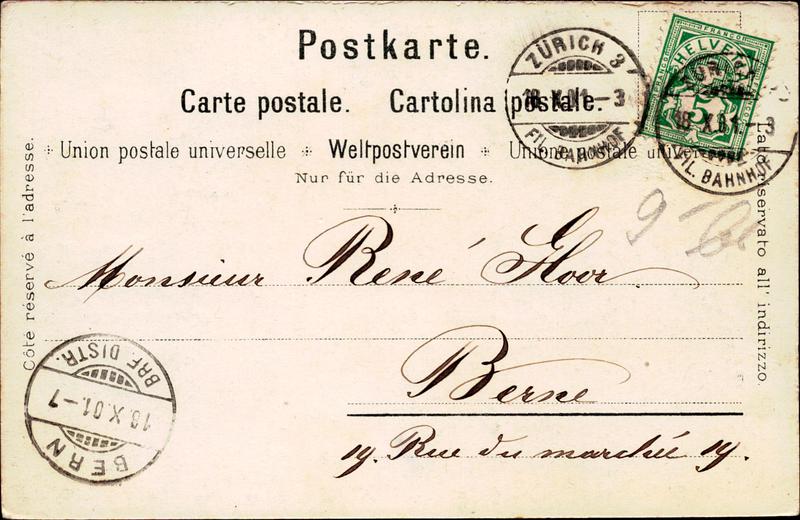 Postkarte.
Carte postale. Cartolina postale.
Union postale universelle Weltpostverein Unione postale universale
Nur für die Adresse.
Côté réservé à l'adresse.
Lato riservato all' indirizzo.
ZÜRICH 3
18.X.01.-3
FIL. BAHNHOF
FRANCO
HELVETIA
5
18.X.01.-3
FIL. BAHNHOF
Monsieur René Gloor
Berne
19. Rue du marché 19.
BRF. DISTR.
18.X.01.-7
BERN